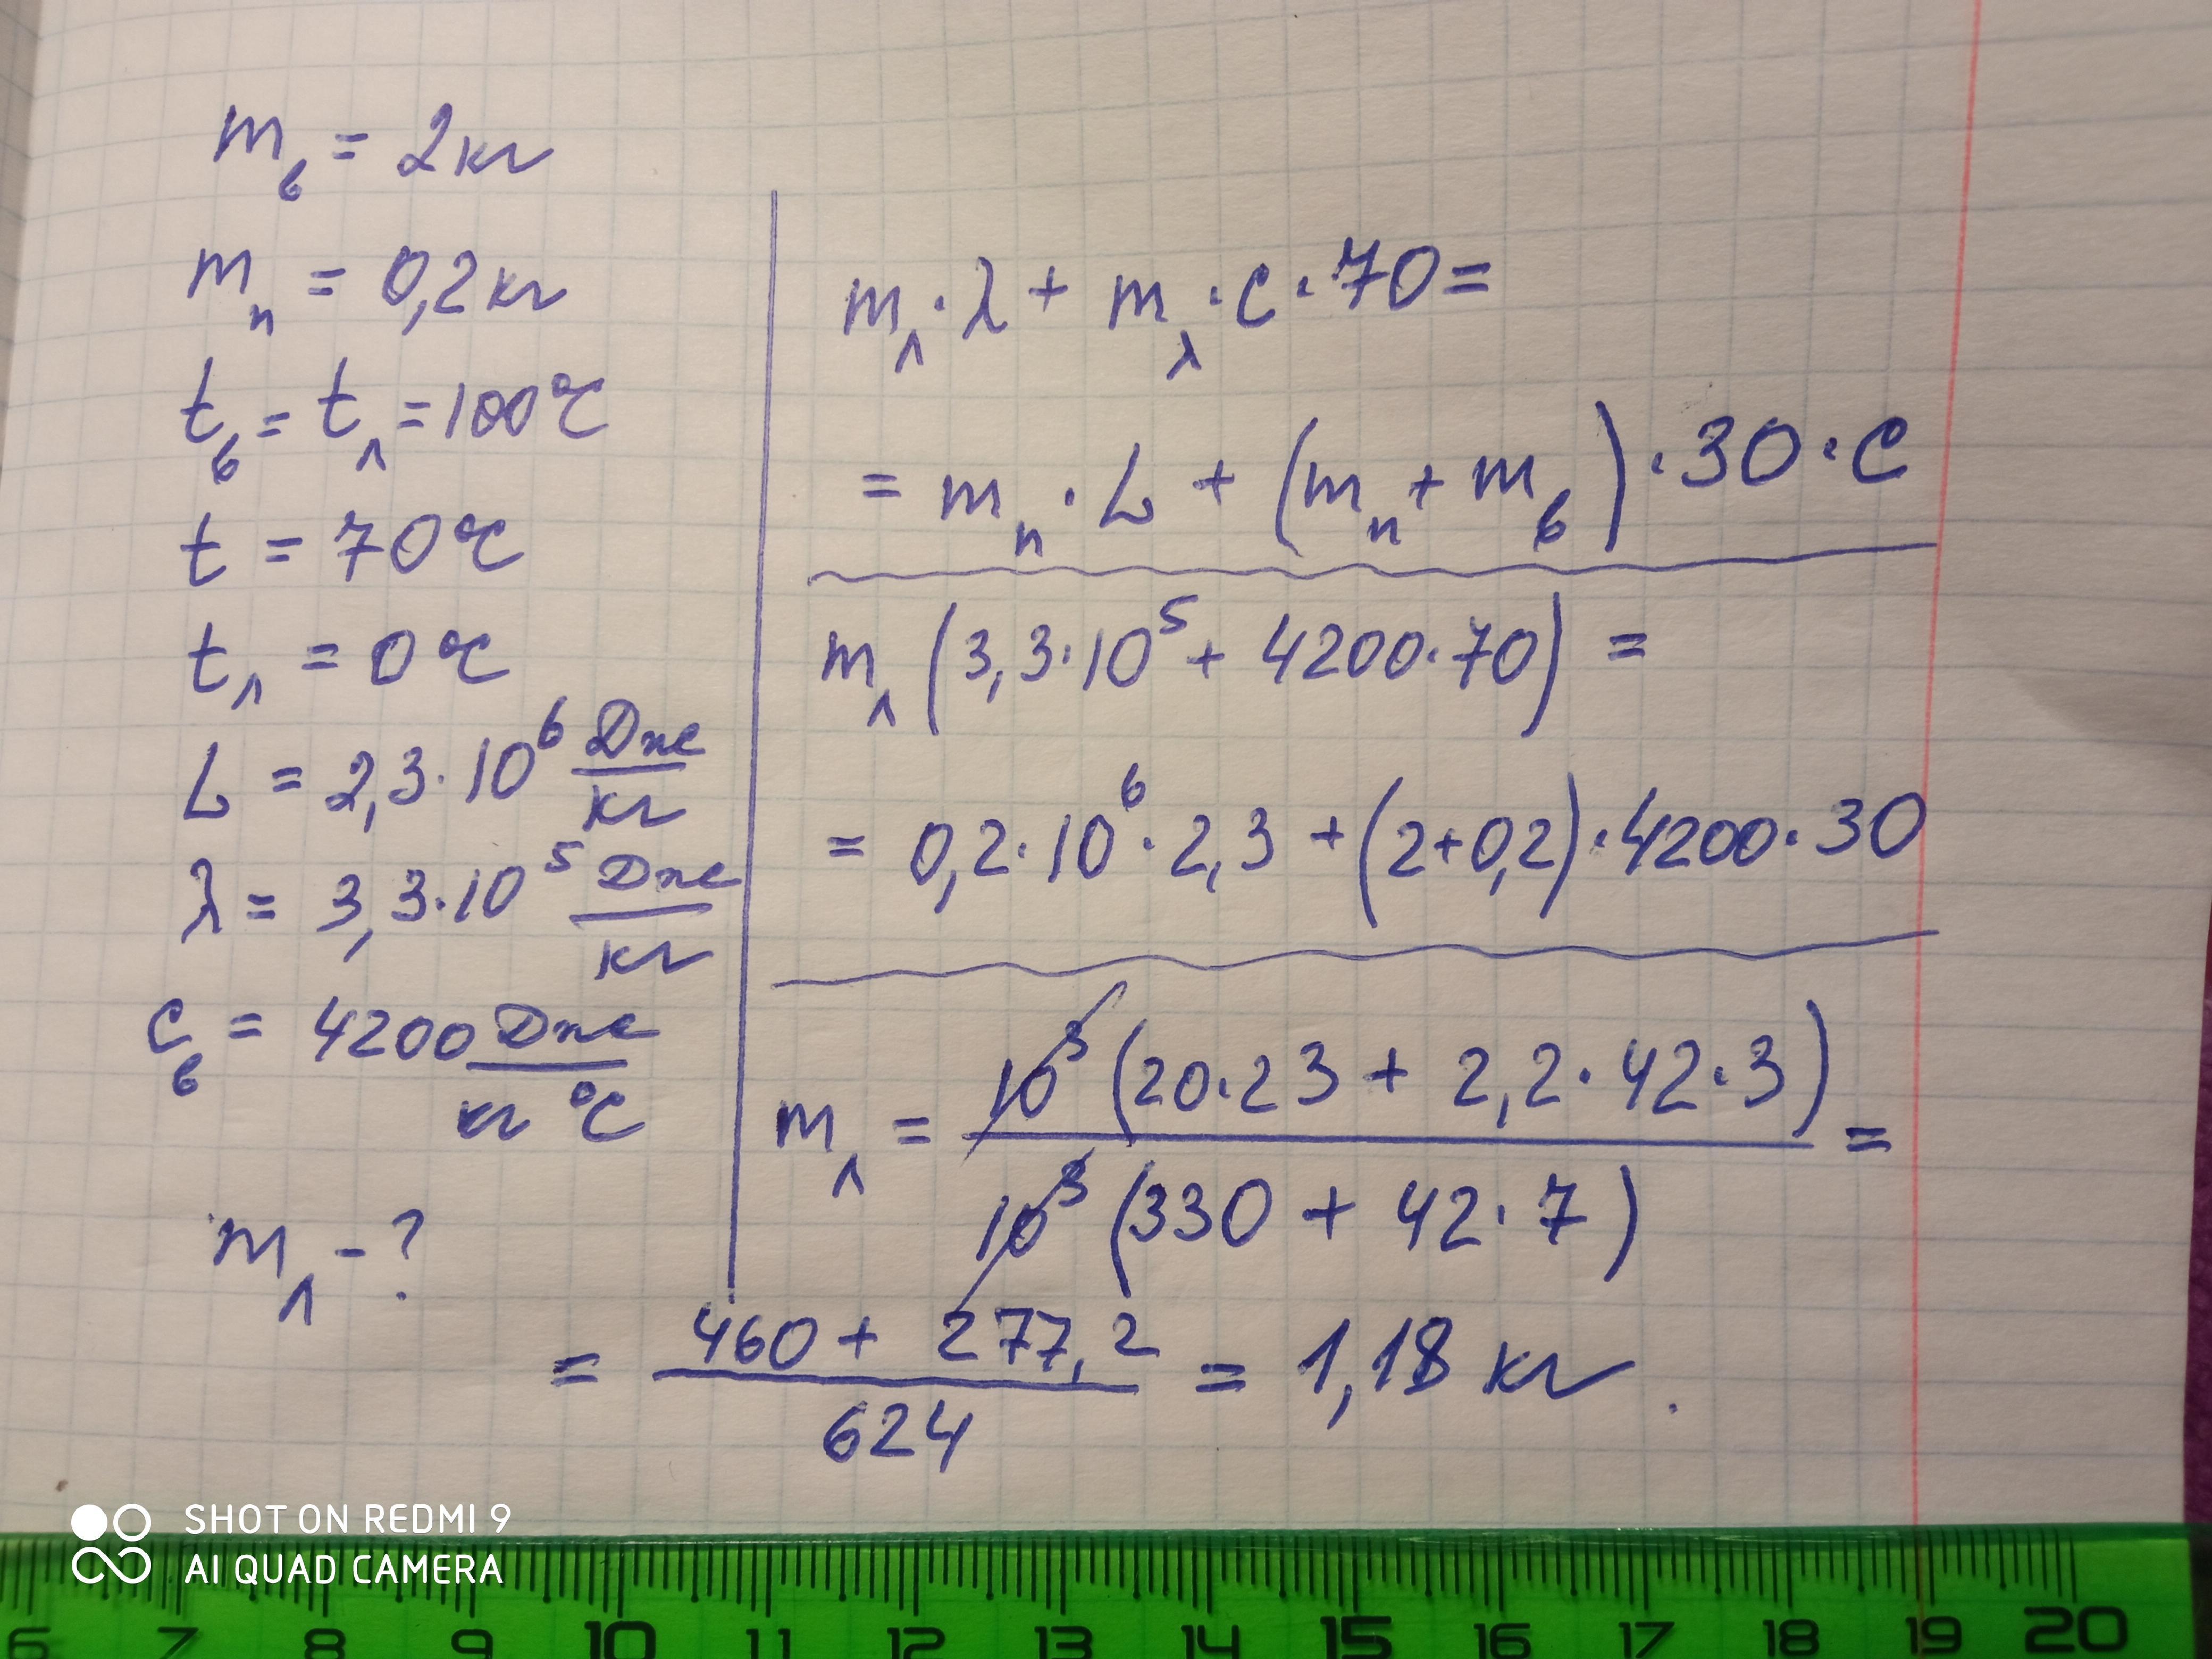 mв = 2кг
mп = 0,2кг
tв = tл = 100°C
t = 70°C
tл = 0°C
L = 2,3·10⁶ Дж/кг
λ = 3,3·10⁵ Дж/кг
cв = 4200 Дж/кг °C
mл - ?
mл·λ + mл·c·70 =
= mп·L + (mп + mв)·30·c
mл (3,3·10⁵ + 4200·70) =
= 0,2·10⁶·2,3 + (2+0,2)·4200·30
mл = 10³ (20·23 + 2,2·42·3) / 10³ (330 + 42·7) =
= 460 + 277,2 / 624 = 1,18 кг.
SHOT ON REDMI 9
AI QUAD CAMERA
6 7 8 9 10 11 12 13 14 15 16 17 18 19 20